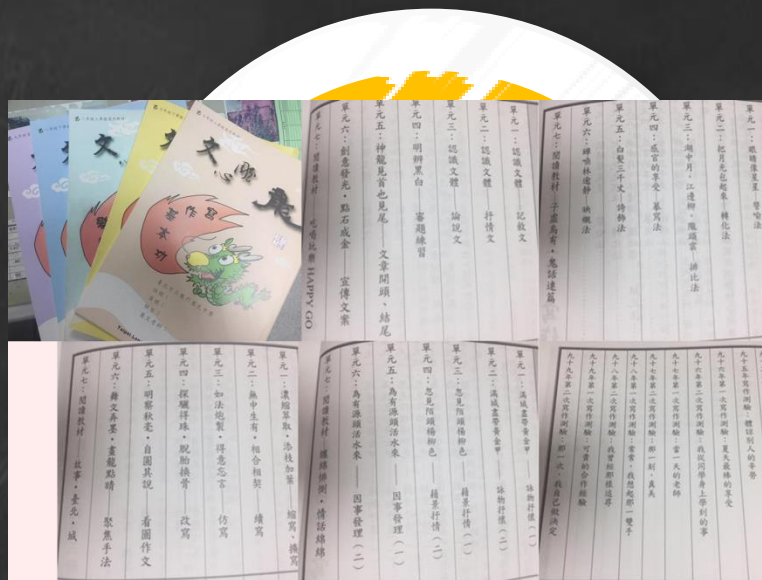 文心雕龍
單元一：認識文體　記敘文
單元二：認識文體　抒情文
單元三：認識文體　論說文
單元四：明辨黑白　審題練習
單元五：神龍見首也見尾　文章開頭、結尾
單元六：創意發光，點石成金　宣傳文案
單元七：閱讀教材　吃喝玩樂 HAPPY GO
單元一：眼睛像星星　譬喻法
單元二：把月光包起來－轉化法
單元三：湖中月，江邊柳，隴頭雲　排比法
單元四：感官的享受　摹寫法
單元五：白髮三千丈－誇飾法
單元六：蟬噪林逾靜－映襯法
單元七：閱讀教材　子虛烏有，鬼話連篇
單元一：濃縮萃取，添枝加葉　縮寫、擴寫
單元二：無中生有，相合相契　續寫
單元三：如法炮製，得意忘言　仿寫
單元四：探驪得珠，脫胎換骨　改寫
單元五：明察秋毫，自圓其說　看圖作文
單元六：舞文弄墨，畫龍點睛　聚焦手法
單元七：閱讀教材——故事，臺北，城
單元一：滿城盡帶黃金甲——詠物抒懷（一）
單元二：滿城盡帶黃金甲——詠物抒懷（二）
單元三：忽見陌頭楊柳色——藉景抒情（一）
單元四：忽見陌頭楊柳色——藉景抒情（二）
單元五：為有源頭活水來——因事發理（一）
單元六：為有源頭活水來——因事發理（二）
單元七：閱讀教材　纏綿悱惻，情話綿綿
九十五年寫作測驗：體諒別人的辛勞
九十六年第一次寫作測驗：夏天最棒的享受
九十六年第二次寫作測驗：我從同學身上學到的事
九十七年第一次寫作測驗：當一天的老師
九十七年第二次寫作測驗：那一刻，真美
九十八年第一次寫作測驗：常常，我想起那一雙手
九十八年第二次寫作測驗：我曾經那樣追尋
九十九年第一次寫作測驗：可貴的合作經驗
九十九年第二次寫作測驗：那一次，我自己做決定